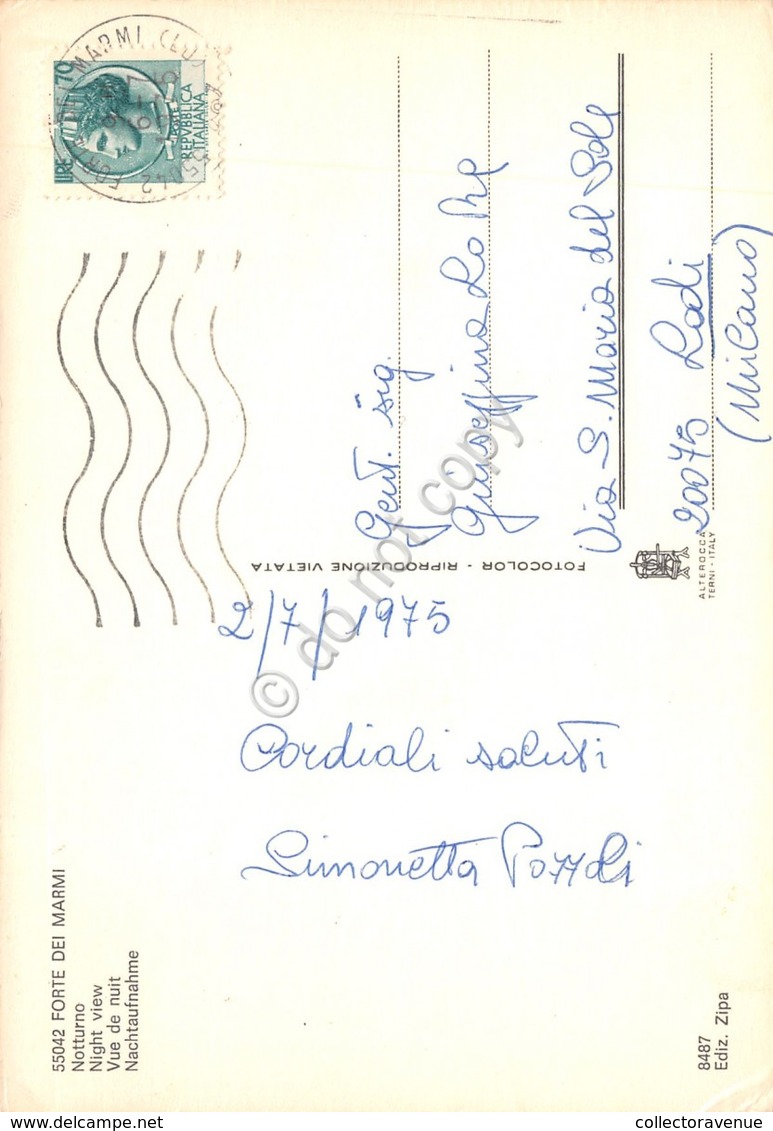 55042 FORTE DEI MARMI
Notturno
Night view
Vue de nuit
Nachtaufnahme
2/7/1975
Cordiali saluti
Simonetta Pozzoli
8487
Ediz. Zipa
FOTOCOLOR - RIPRODUZIONE VIETATA
ALTEROCCA
TERNI - ITALY
LIRE 70
REPVBBLICA
ITALIANA
55042 FORTE DEI MARMI (LU)
Gent. sig.
Giuseppina Lo Re
Via S. Maria del Sole
20075 Lodi
(Milano)
© do not copy
collectoravenue
delcampe.net